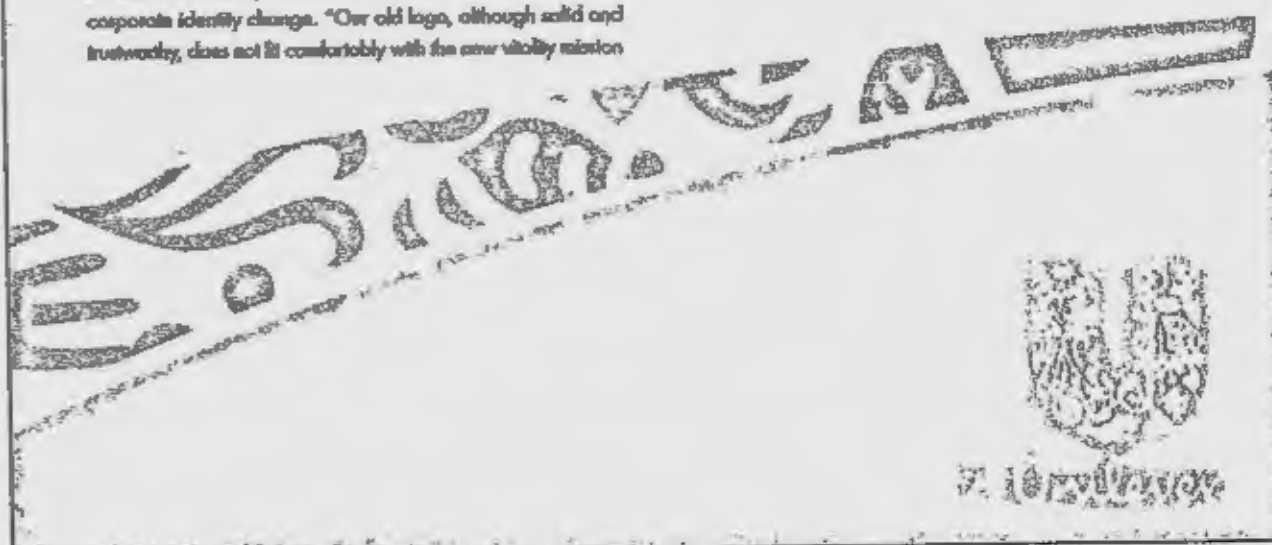 corporate identity change. "Our old logo, although solid and
trustworthy, does not fit comfortably with the new vitality mission